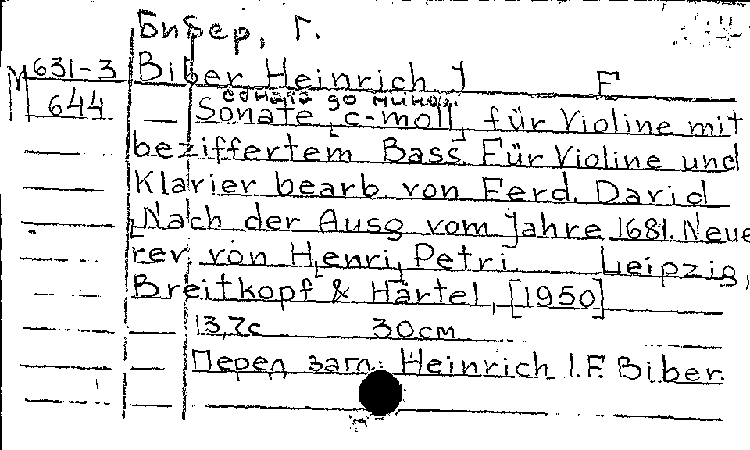 Бибер, Г.
М 631-3 Biber Heinrich J F
644 соната до минор
— Sonate [c-moll] für Violine mit
beziffertem Bass Für Violine und
Klavier bearb von Ferd. David
Nach der Ausg vom Jahre 1681. Neue
rev. von Henri Petri Leipzig,
Breitkopf & Härtel, [1950]
13,7c 30см
Перед загл: Heinrich I. F. Biber.